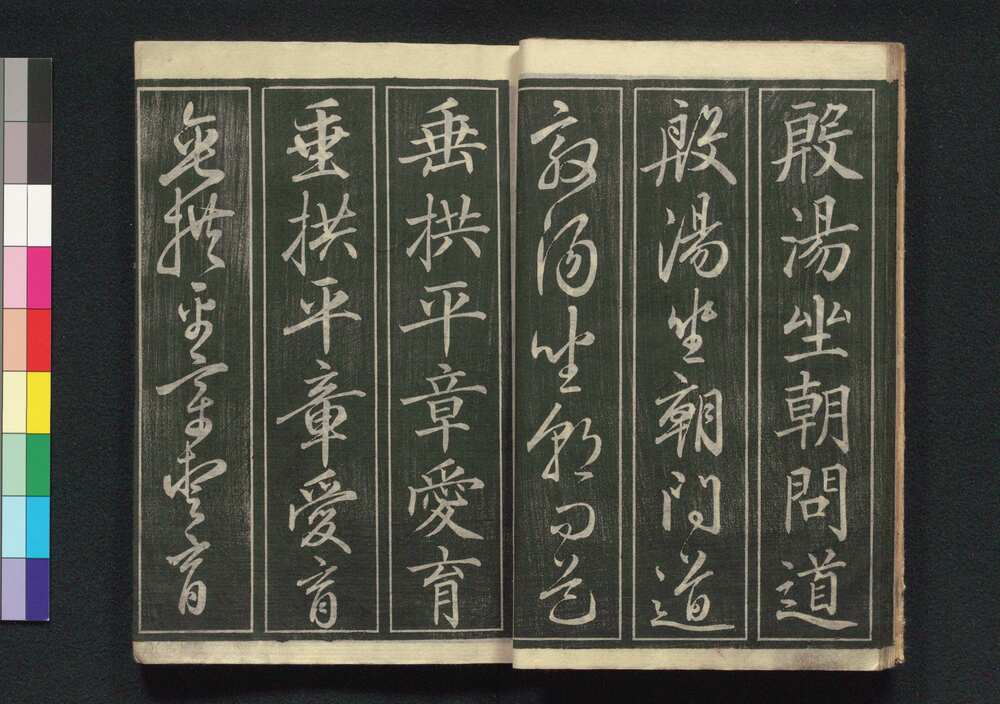 殷湯坐朝問道
殷湯坐朝問道
殷湯坐朝問道
垂拱平章愛育
垂拱平章愛育
垂拱平章愛育